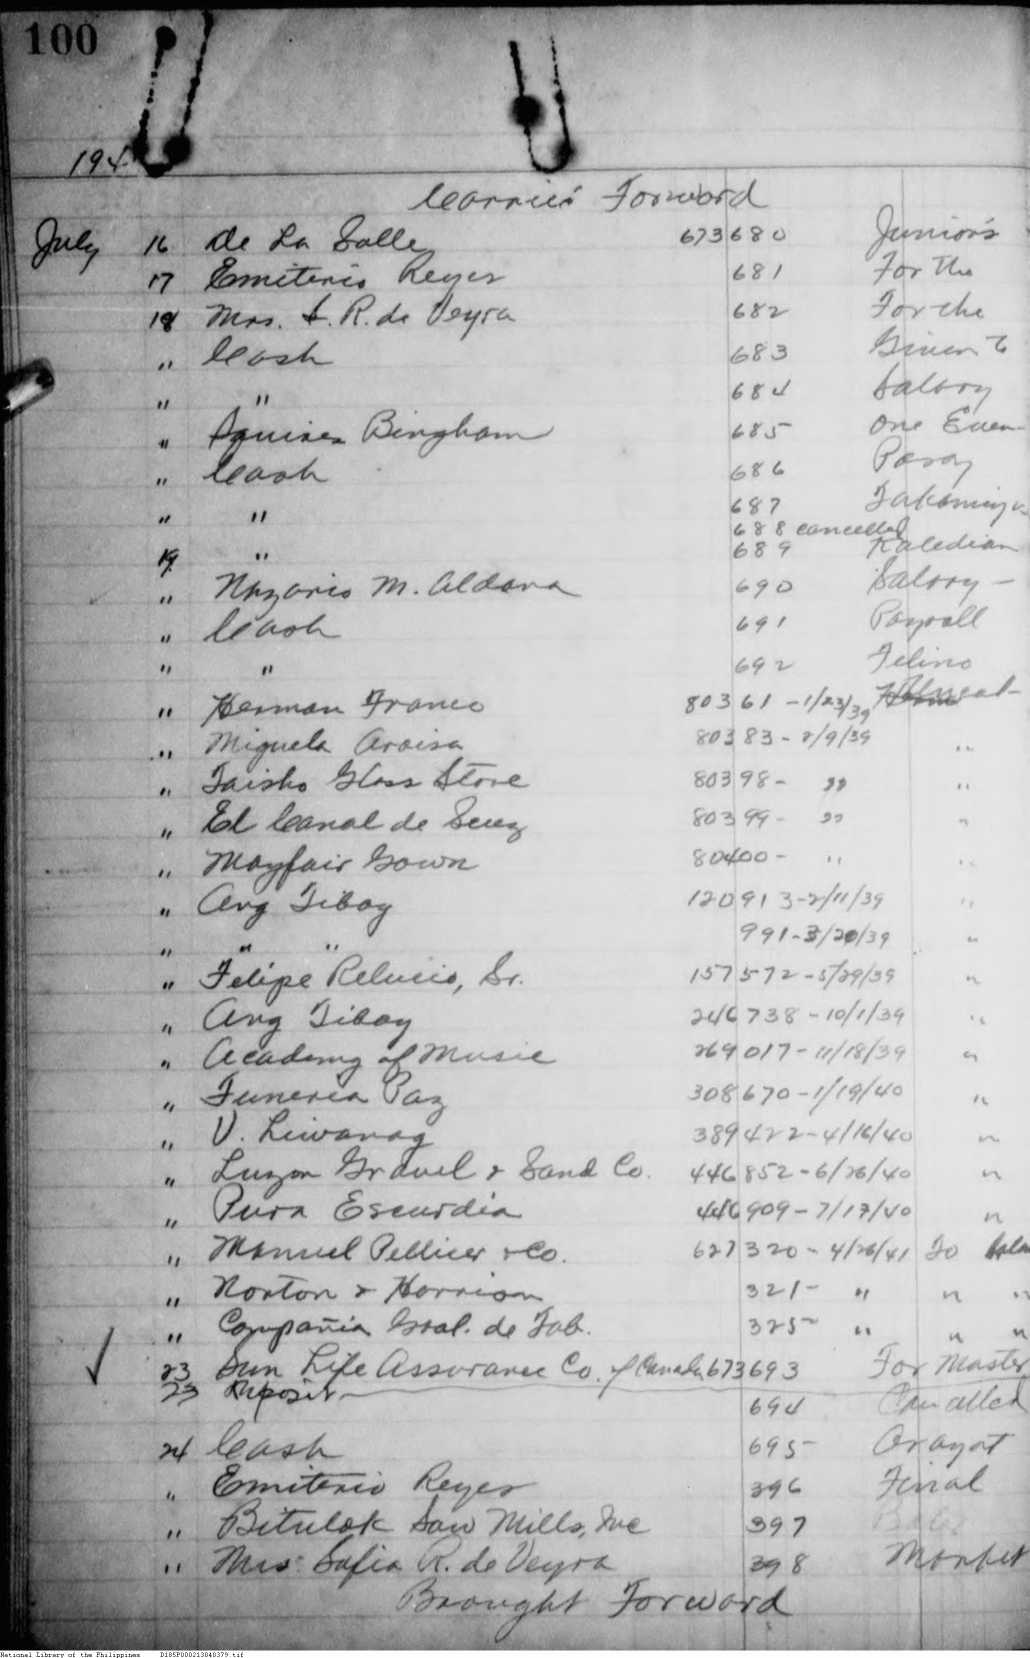 100
194
Carried Forward
July 16 De La Salle 673 680 Junior's
17 Emiterio Reyes 681 For The
18 Mrs. S. R. de Veyra 682 For the
" Cash 683 Given to
" " 684 Salary
" Squires Bingham 685 One Even-
" Cash 686
" " 687
688 cancelled
19 " 689
" Nazario M. Aldana 690 Salary -
" Cash 691 Payroll
" " 692 Felino
" Herman Franco 80361 - 1/23/39
" Miguela 80383 - 2/9/39 "
" Taisho Glass Store 80398 - " "
" El Canal de Suez 80399 - " "
" Mayfair Gown 80400 - " "
" Ang Tibay 120913 - 2/11/39 "
" " " 991 - 3/20/39 "
" Felipe Relucio, Sr. 157572 - 5/29/39 "
" Ang Tibay 246738 - 10/1/39 "
" Academy of Music 269017 - 11/18/39 "
" Funeria Paz 308670 - 1/19/40 "
" V. Liwanag 389422 - 4/16/40 "
" Luzon Gravel & Sand Co. 446852 - 6/26/40 "
" Pura Escurdia 446909 - 7/17/40 "
" Manuel Pellicer & Co. 627320 - 4/26/41 To
" Norton & Harrison 321 - " " "
" Compañia Gral. de Tab. 325 - " " "
23 Sun Life Assurance Co. of Canada 673693 For Master
23 Deposit
694 Cancelled
24 Cash 695 Arayat
" Emiterio Reyes 396 Final
" Bitulok Saw Mills, Inc 397
" Mrs. Sofia R. de Veyra 398 Market
Brought Forward
National Library of the Philippines D185P000213040379.tif